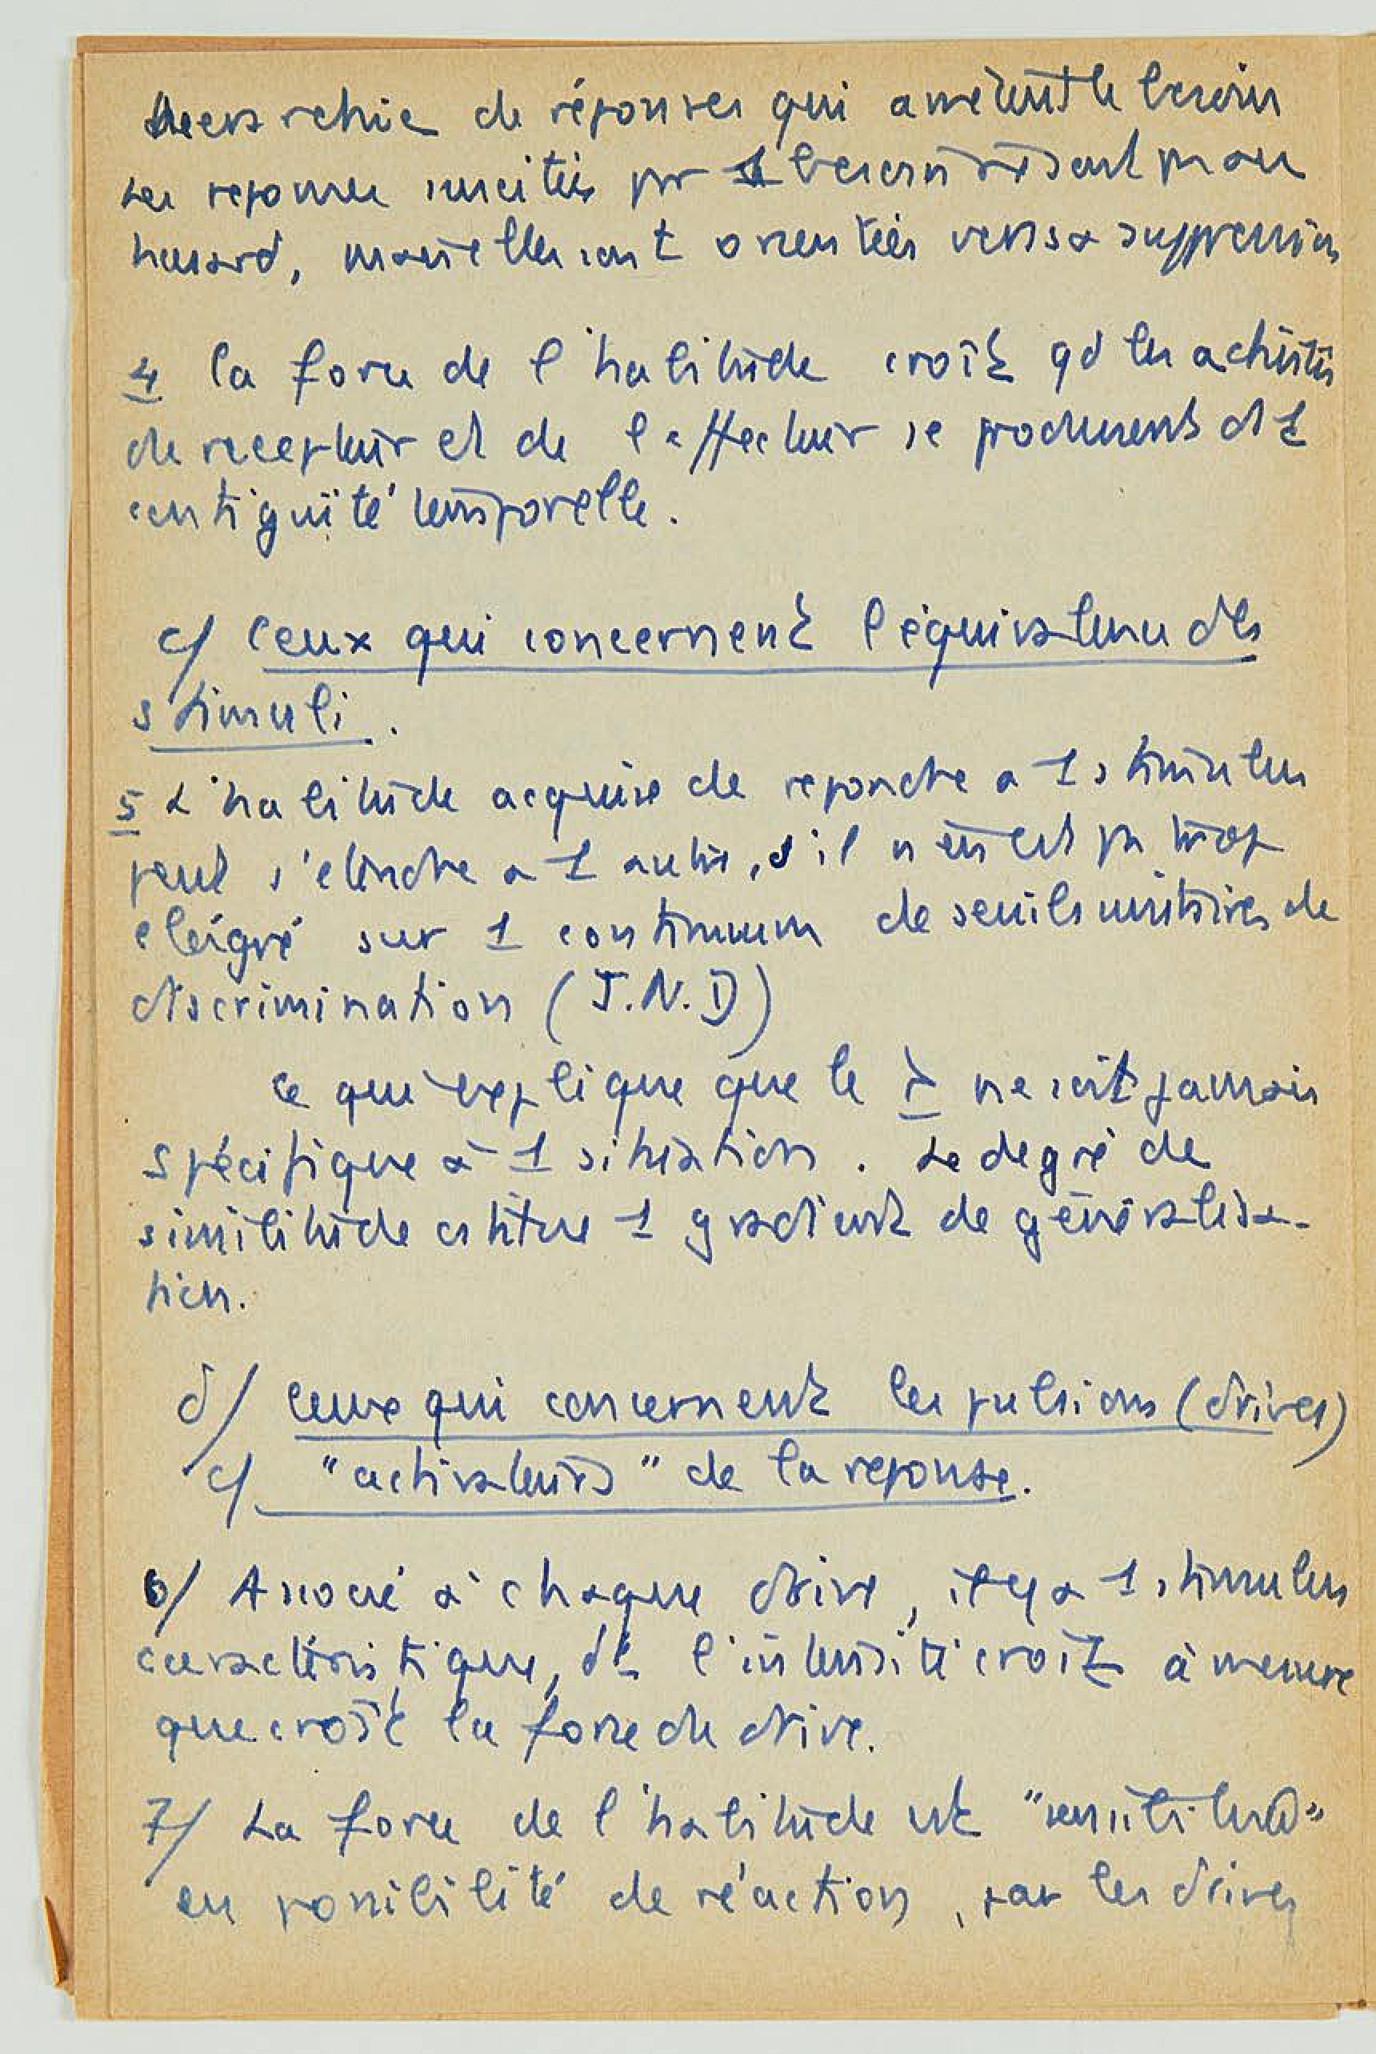 hierarchie de réponses qui arrêtent le besoin
Les reponses suscitées pr 1 besoin st pas au
hasard, mais elles sont orientées vers sa suppression
4 la force de l'habitude croît qd les activités
du recepteur et de l'effecteur se produisent ds 1
contiguïté temporelle.
c/ Ceux qui concernent l'équivalence des
stimuli.
5 L'habitude acquise de repondre a 1 stimulus
peut s'etendre a 1 autre, s'il n'en est pas trop
eloigné sur 1 continuum de seuils unitaires de
discrimination (J.N.D)
Ce qui explique que le r ne soit jamais
spécifique à 1 situation. Le degré de
similitude constitue 1 gradient de généralisa-
tion.
d/ Ceux qui concernent les pulsions (drives)
c/ "activateurs" de la reponse.
6/ Associé à chaque drive, il y a 1 stimulus
caractéristique, dt l'intensité croît à mesure
que croît la force du drive.
7/ La force de l'habitude est "sensitized"
en possibilité de réaction, par les drives